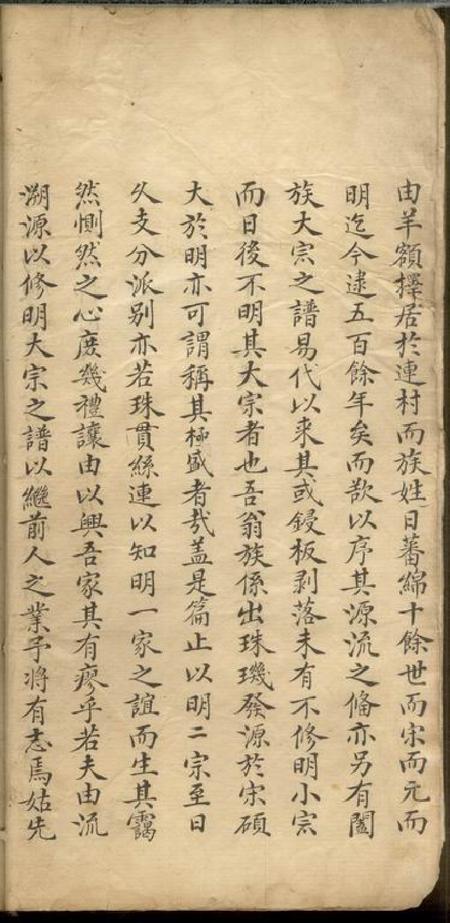 由羊額擇居於連村而族姓日蕃綿十餘世而宋而元而
明迄今逮五百餘年矣而欲以序其源流之俻亦另有闔
族大宗之譜易代以來其或鋟板剥落未有不修明小宗
而日後不明其大宗者也吾翁族係出珠璣發源於宋碩
大於明亦可謂稱其極盛者哉盖是篇止以明二宗至日
久支分派别亦若珠貫絲連以知明一家之誼而生其靄
然惻然之心庻幾禮讓由以興吾家其有廖乎若夫由流
溯源以修明大宗之譜以繼前人之業予将有志焉姑先